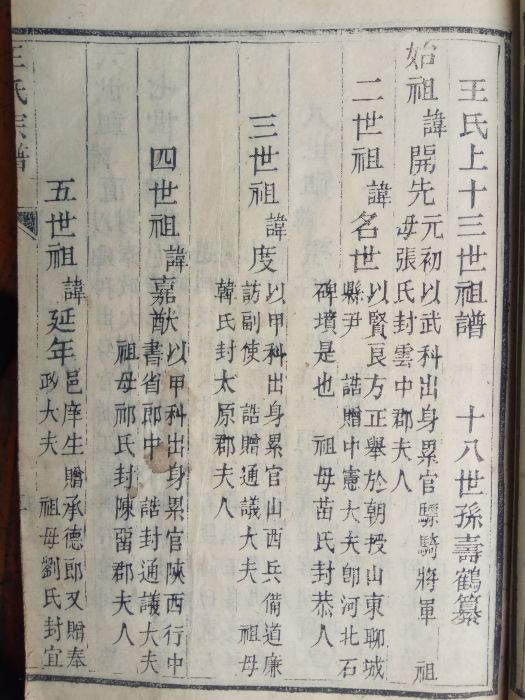 王氏上十三世祖譜　十八世孫壽鶴纂
始祖諱開先元初以武科出身累官驃騎將軍　祖
母張氏封雲中郡夫人
二世祖諱名世以賢良方正舉於朝授山東聊城
縣尹　誥贈中憲大夫卽河北石
碑墳是也　祖母苗氏封恭人
三世祖諱度以甲科出身累官山西兵備道廉
訪副使　誥贈通議大夫　祖母
韓氏封太原郡夫人
四世祖諱嘉猷以甲科出身累官陝西行中
書省郎中　誥封通議大夫
祖母祁氏封陳留郡夫人
五世祖諱延年邑庠生贈承德郎又贈奉
政大夫　祖母劉氏封宜
王氏宗譜